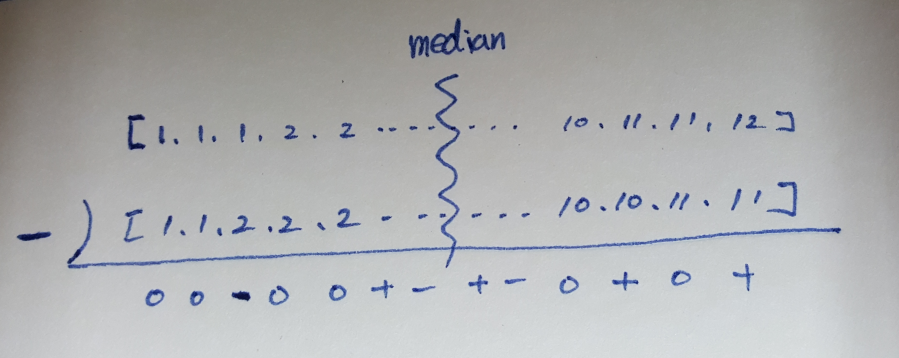 median
[1. 1. 1. 2. 2 ········ 10. 11. 11, 12]
-) [1.1.2.2.2 ········ 10.10.11.11]
0 0 - 0 0 + - + - 0 + 0 +